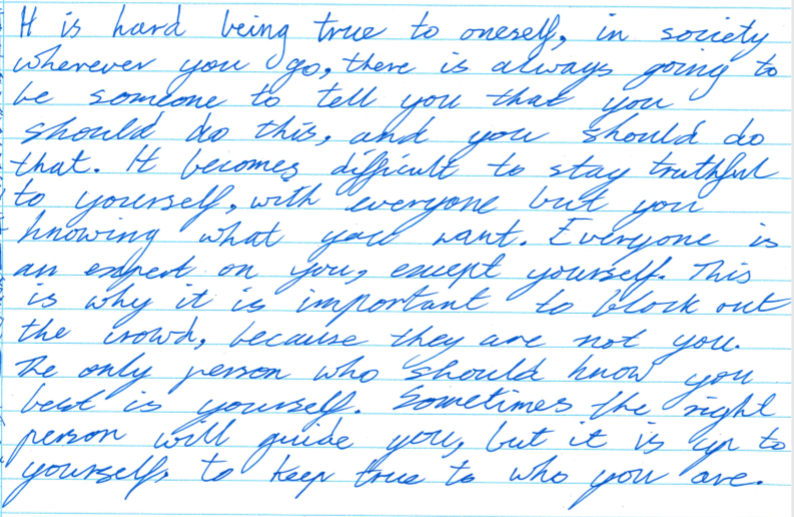 It is hard being true to oneself, in society
wherever you go, there is always going to
be someone to tell you that you
should do this, and you should do
that. It becomes difficult to stay truthful
to yourself, with everyone but you
knowing what you want. Everyone is
an expert on you, except yourself. This
is why it is important to block out
the crowd, because they are not you.
The only person who should know you
best is yourself. Sometimes the right
person will guide you, but it is up to
yourself, to keep true to who you are.